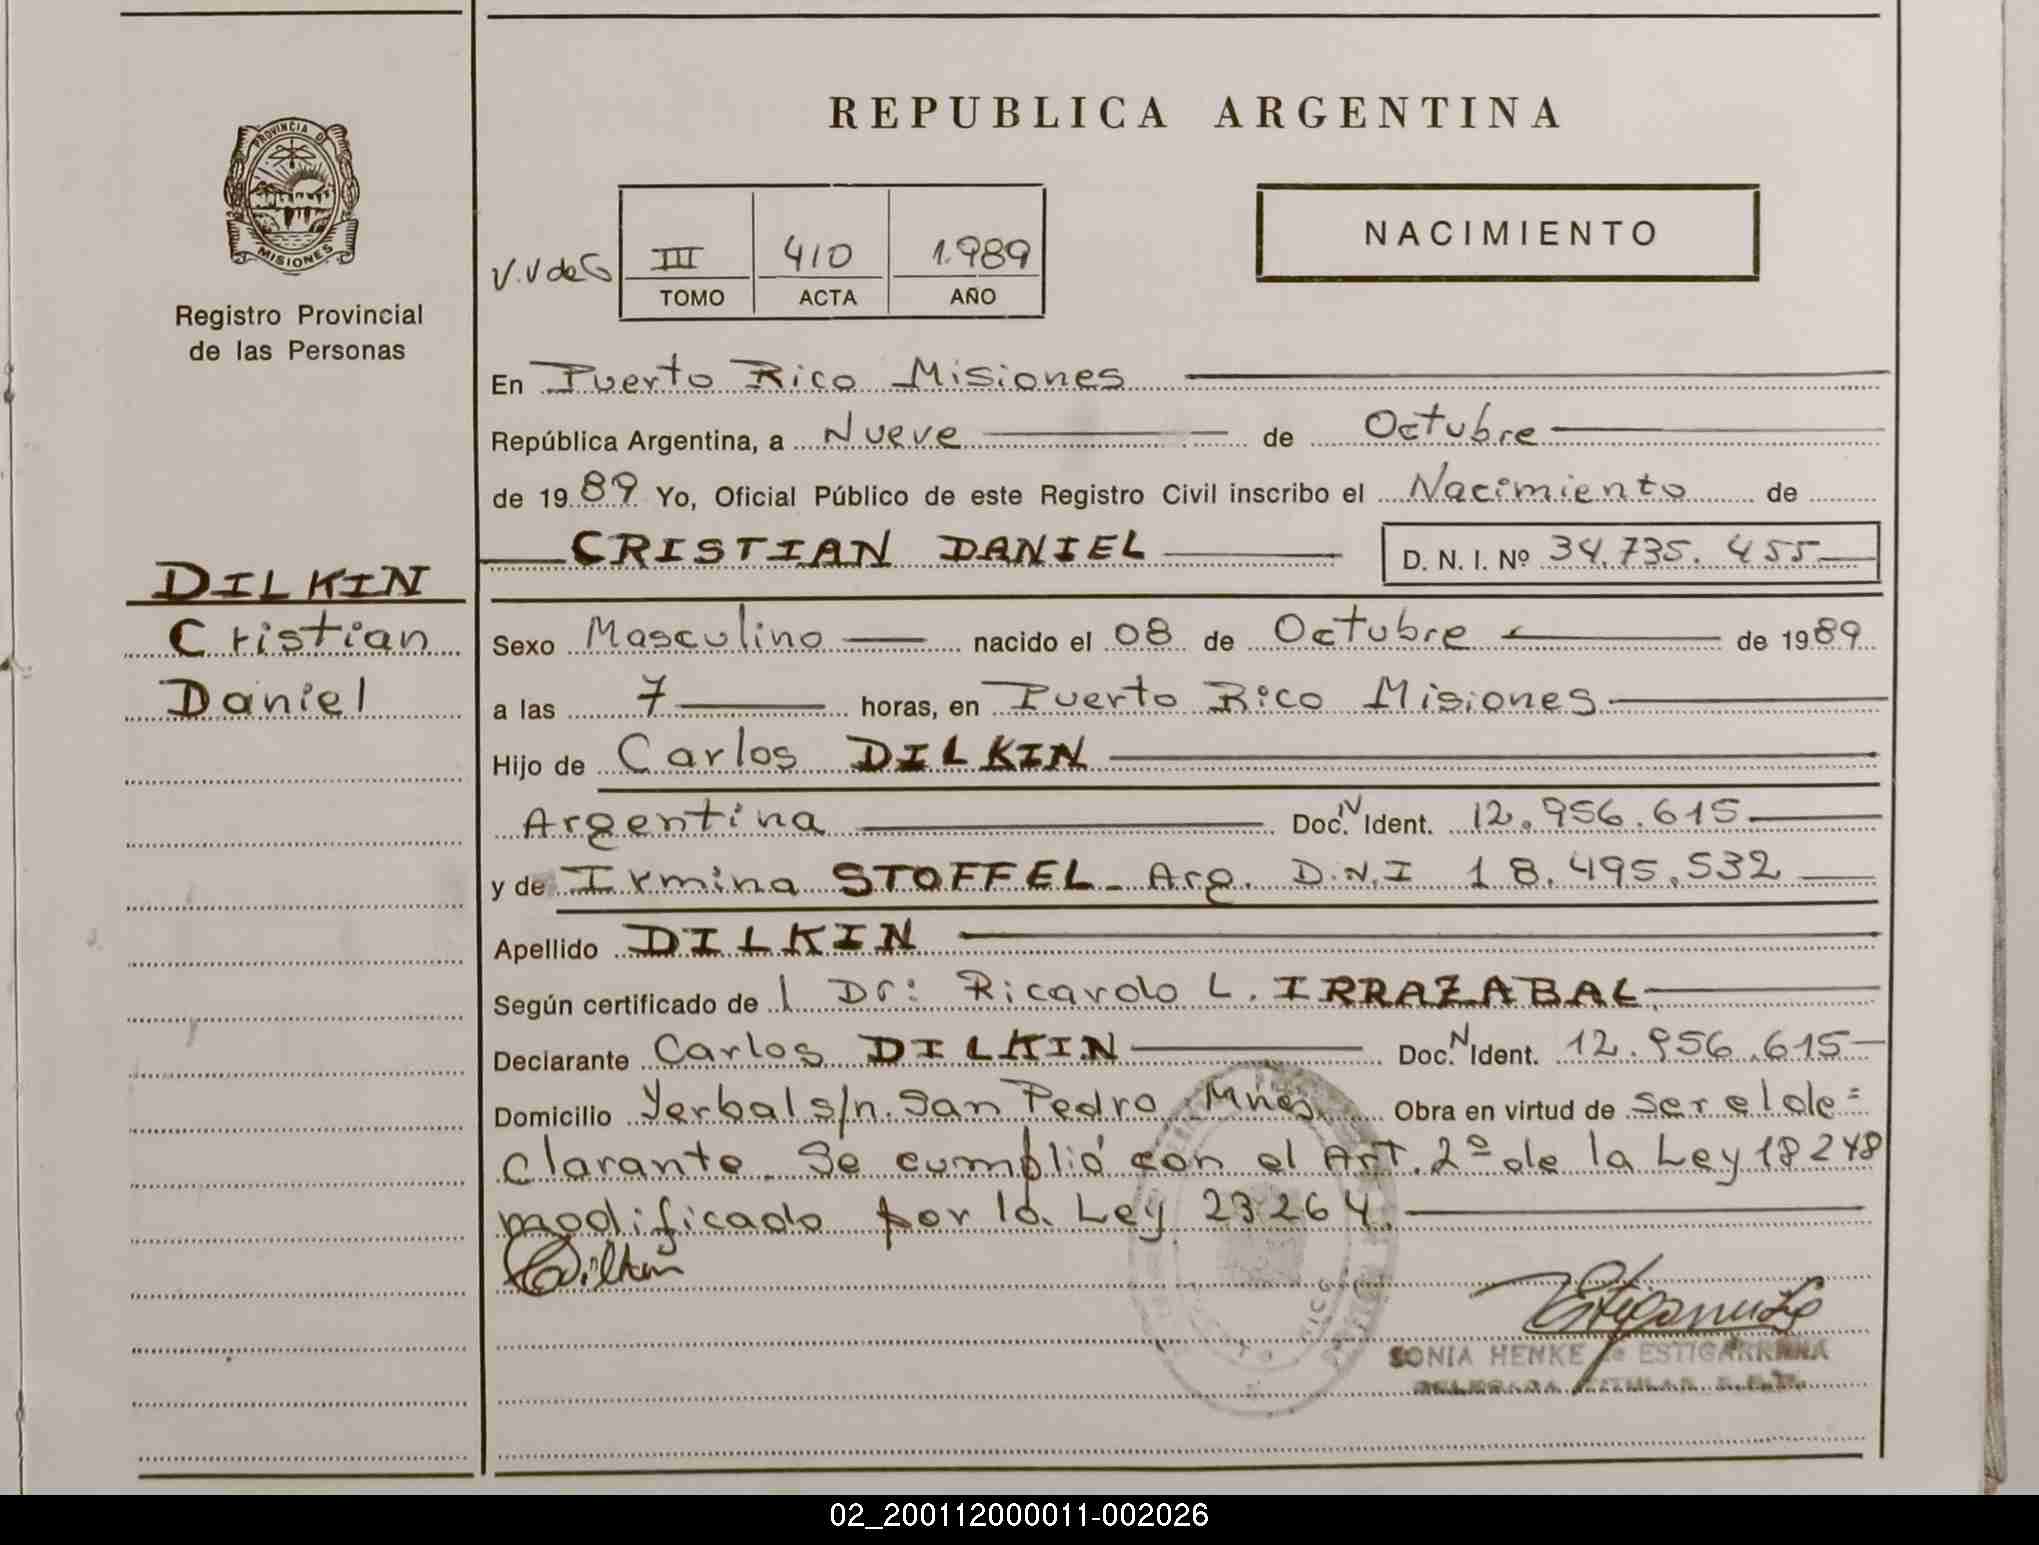 REPUBLICA ARGENTINA
PROVINCIA DE
MISIONES
Registro Provincial
de las Personas
NACIMIENTO
V.V de G III 410 1.989
TOMO ACTA AÑO
En Puerto Rico Misiones
República Argentina, a Nueve de Octubre
de 1989 Yo, Oficial Público de este Registro Civil inscribo el Nacimiento de
CRISTIAN DANIEL D. N. I. Nº 34.735.455
DILKIN
Cristian
Daniel
Sexo Masculino nacido el 08 de Octubre de 1989
a las 7 horas, en Puerto Rico Misiones
Hijo de Carlos DILKIN
Argentina Doc. N Ident. 12.956.615
y de Irmina STOFFEL - Arg. D.N.I 18.495.532
Apellido DILKIN
Según certificado de l Dr: Ricardo L. IRRAZABAL
Declarante Carlos DILKIN Doc. N Ident. 12.956.615
Domicilio Yerbal s/n. San Pedro Mnes Obra en virtud de ser el de=
clarante. Se cumplió con el Art. 2º de la Ley 18248
modificado por la Ley 23264.
Dilkin
SONIA HENKE de ESTIGARRIBIA
DELEGADA TITULAR
02_200112000011-002026